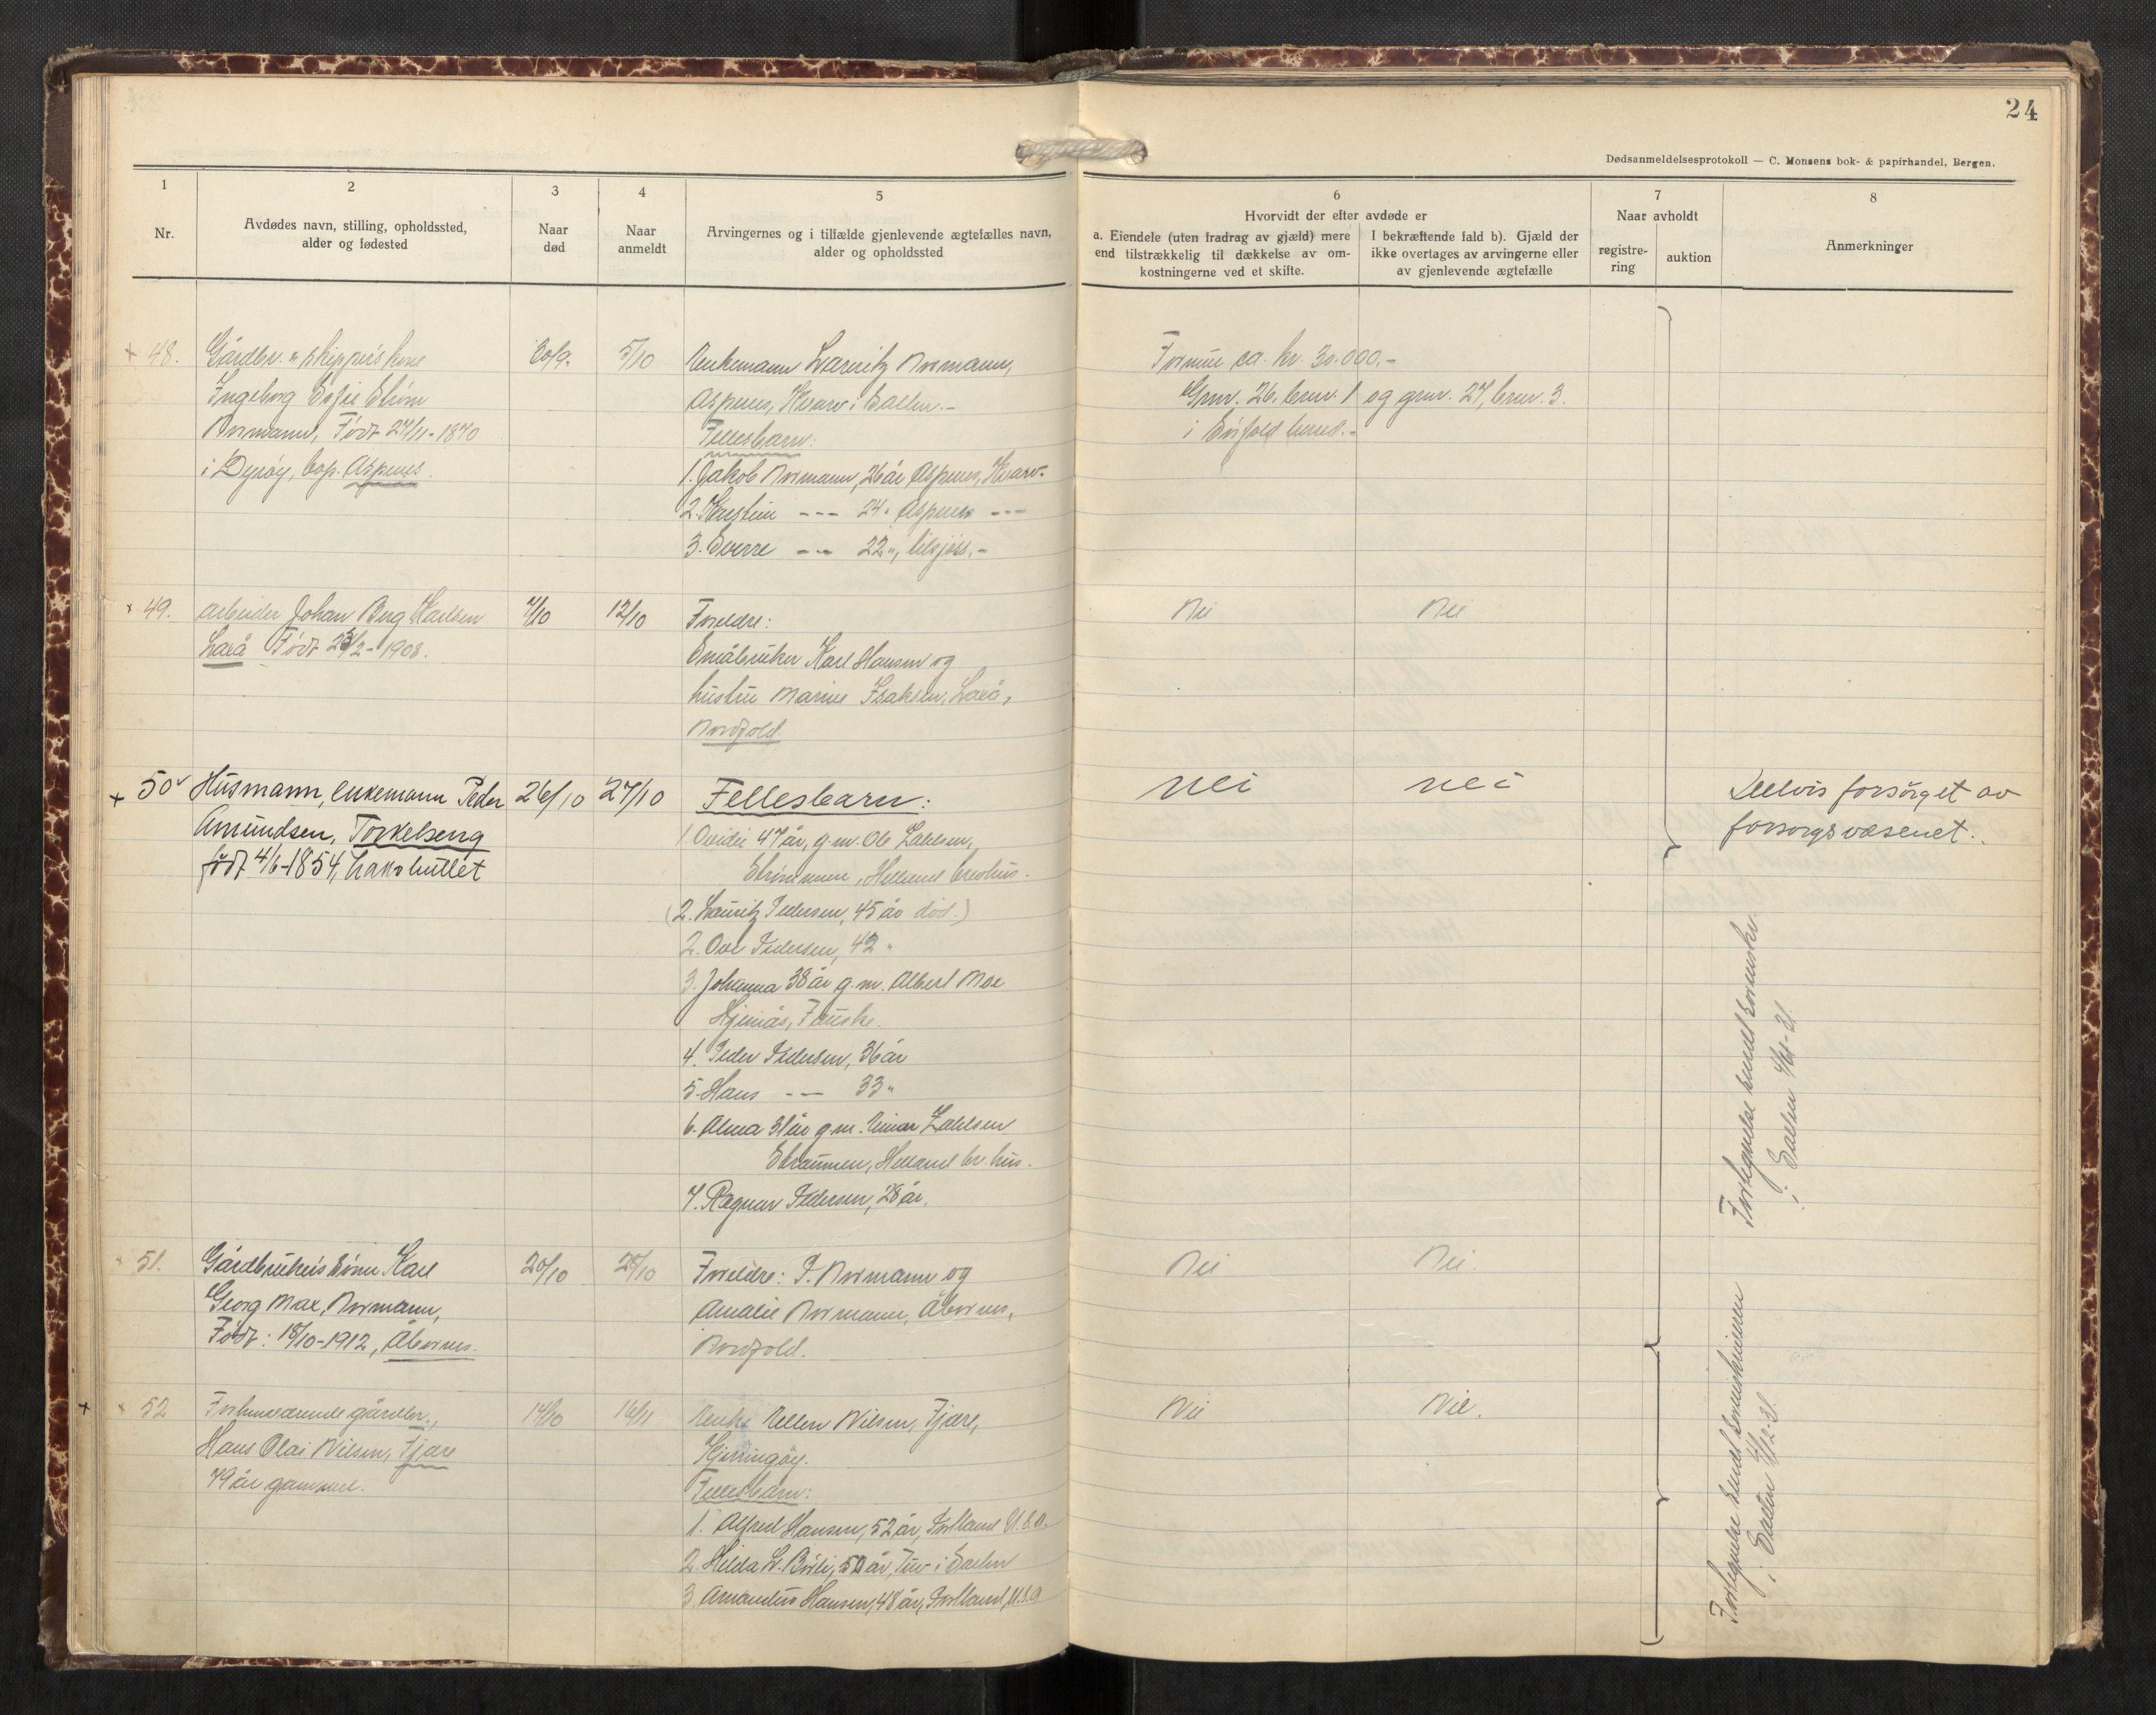 24
Dødsanmeldelsesprotokoll — C. Monsens bok- & papirhandel, Bergen.
1
Nr.
2
Avdødes navn, stilling, opholdssted,
alder og fødested
3
Naar
død
4
Naar
anmeldt
5
Arvingernes og i tilfælde gjenlevende ægtefælles navn,
alder og opholdssted
6
Hvorvidt der efter avdøde er
a. Eiendele (uten fradrag av gjæld) mere
end tilstrækkelig til dækkelse av om-
kostningerne ved et skifte.
I bekræftende fald b). Gjæld der
ikke overtages av arvingerne eller
av gjenlevende ægtefælle
7
Naar avholdt
registre-
ring
auktion
8
Anmerkninger
48.
Gårdbr. & skippers kone
Ingeborg Sofie Strøm
Normann, Født 27/11-1870
i Dyrøy, bop. Aspenes.
30/9.
5/10
Enkemann Lauritz Normann,
Aspenes, Kvarv i Salten.-
Fellesbarn:
1. Jakob Normann, 26 år Aspenes, Kvarv.
2. Kristine --- 24 " Aspenes ---
3. Sverre --- 22 ", tilsjøss.-
Formue ca. kr. 30.000.-
Gnr. 26, brnr. 1 og gnr. 27, brnr. 3.
i Sørfold herred.-
49.
Arbeider Johan Berg Karlsen
Laxå Født 23/2-1908.
7/10
12/10
Foreldre:
Småbruker Karl Hansen og
hustru Marine Isaksen, Laxå,
Nordfold
Nei
Nei
50
Husmann, enkemann Peder
Amundsen, Torkelseng
født 4/6-1854, Laksholtet
26/10
27/10
Fellesbarn:
1. Ovidie 47 år, g.m. Ole Zahlsen,
Straumen, Helland brevhus.
(2. Lauritz Pedersen, 45 år død.)
2. Ove Pedersen, 42 "
3. Johanna 38 år g.m. Albert Moe
Hjemås, Fauske.
4. Peder Pedersen, 36 år
5. Hans --- 33 "
6. Alma 31 år g.m. Einar Zahlsen
Straumen, Helland br.hus.
7. Ragnar Pedersen, 28 år.
nei
nei
Delvis forsørget av
forsorgsvæsenet.
Fortegnelse sendt sorenskr.
i Salten
51.
Gårdbrukers sønn Karl
Georg Max Normann,
Født: 18/10-1912, Åbornes.
20/10
28/10
Foreldre: P. Normann og
Amalie Normann, Åbornes,
Nordfold.
Nei
Nei.
52
Forhenværende gårdbr.,
Hans Olai Nilsen, Fjære
79 år gammel.
14/10
16/11
Enke Ellen Nilsen, Fjære,
Kjerringøy.
Fellesbarn:
1. Alfred Hansen, 52 år, Portland U.S.A.
2. Hilda Hansen, 50 år, Tuv i Salten
3. Amandus Hansen, 48 år, Portland, U.S.A
Nei
Nei.
Fortegnelse sendt sorenskriveren
i Salten